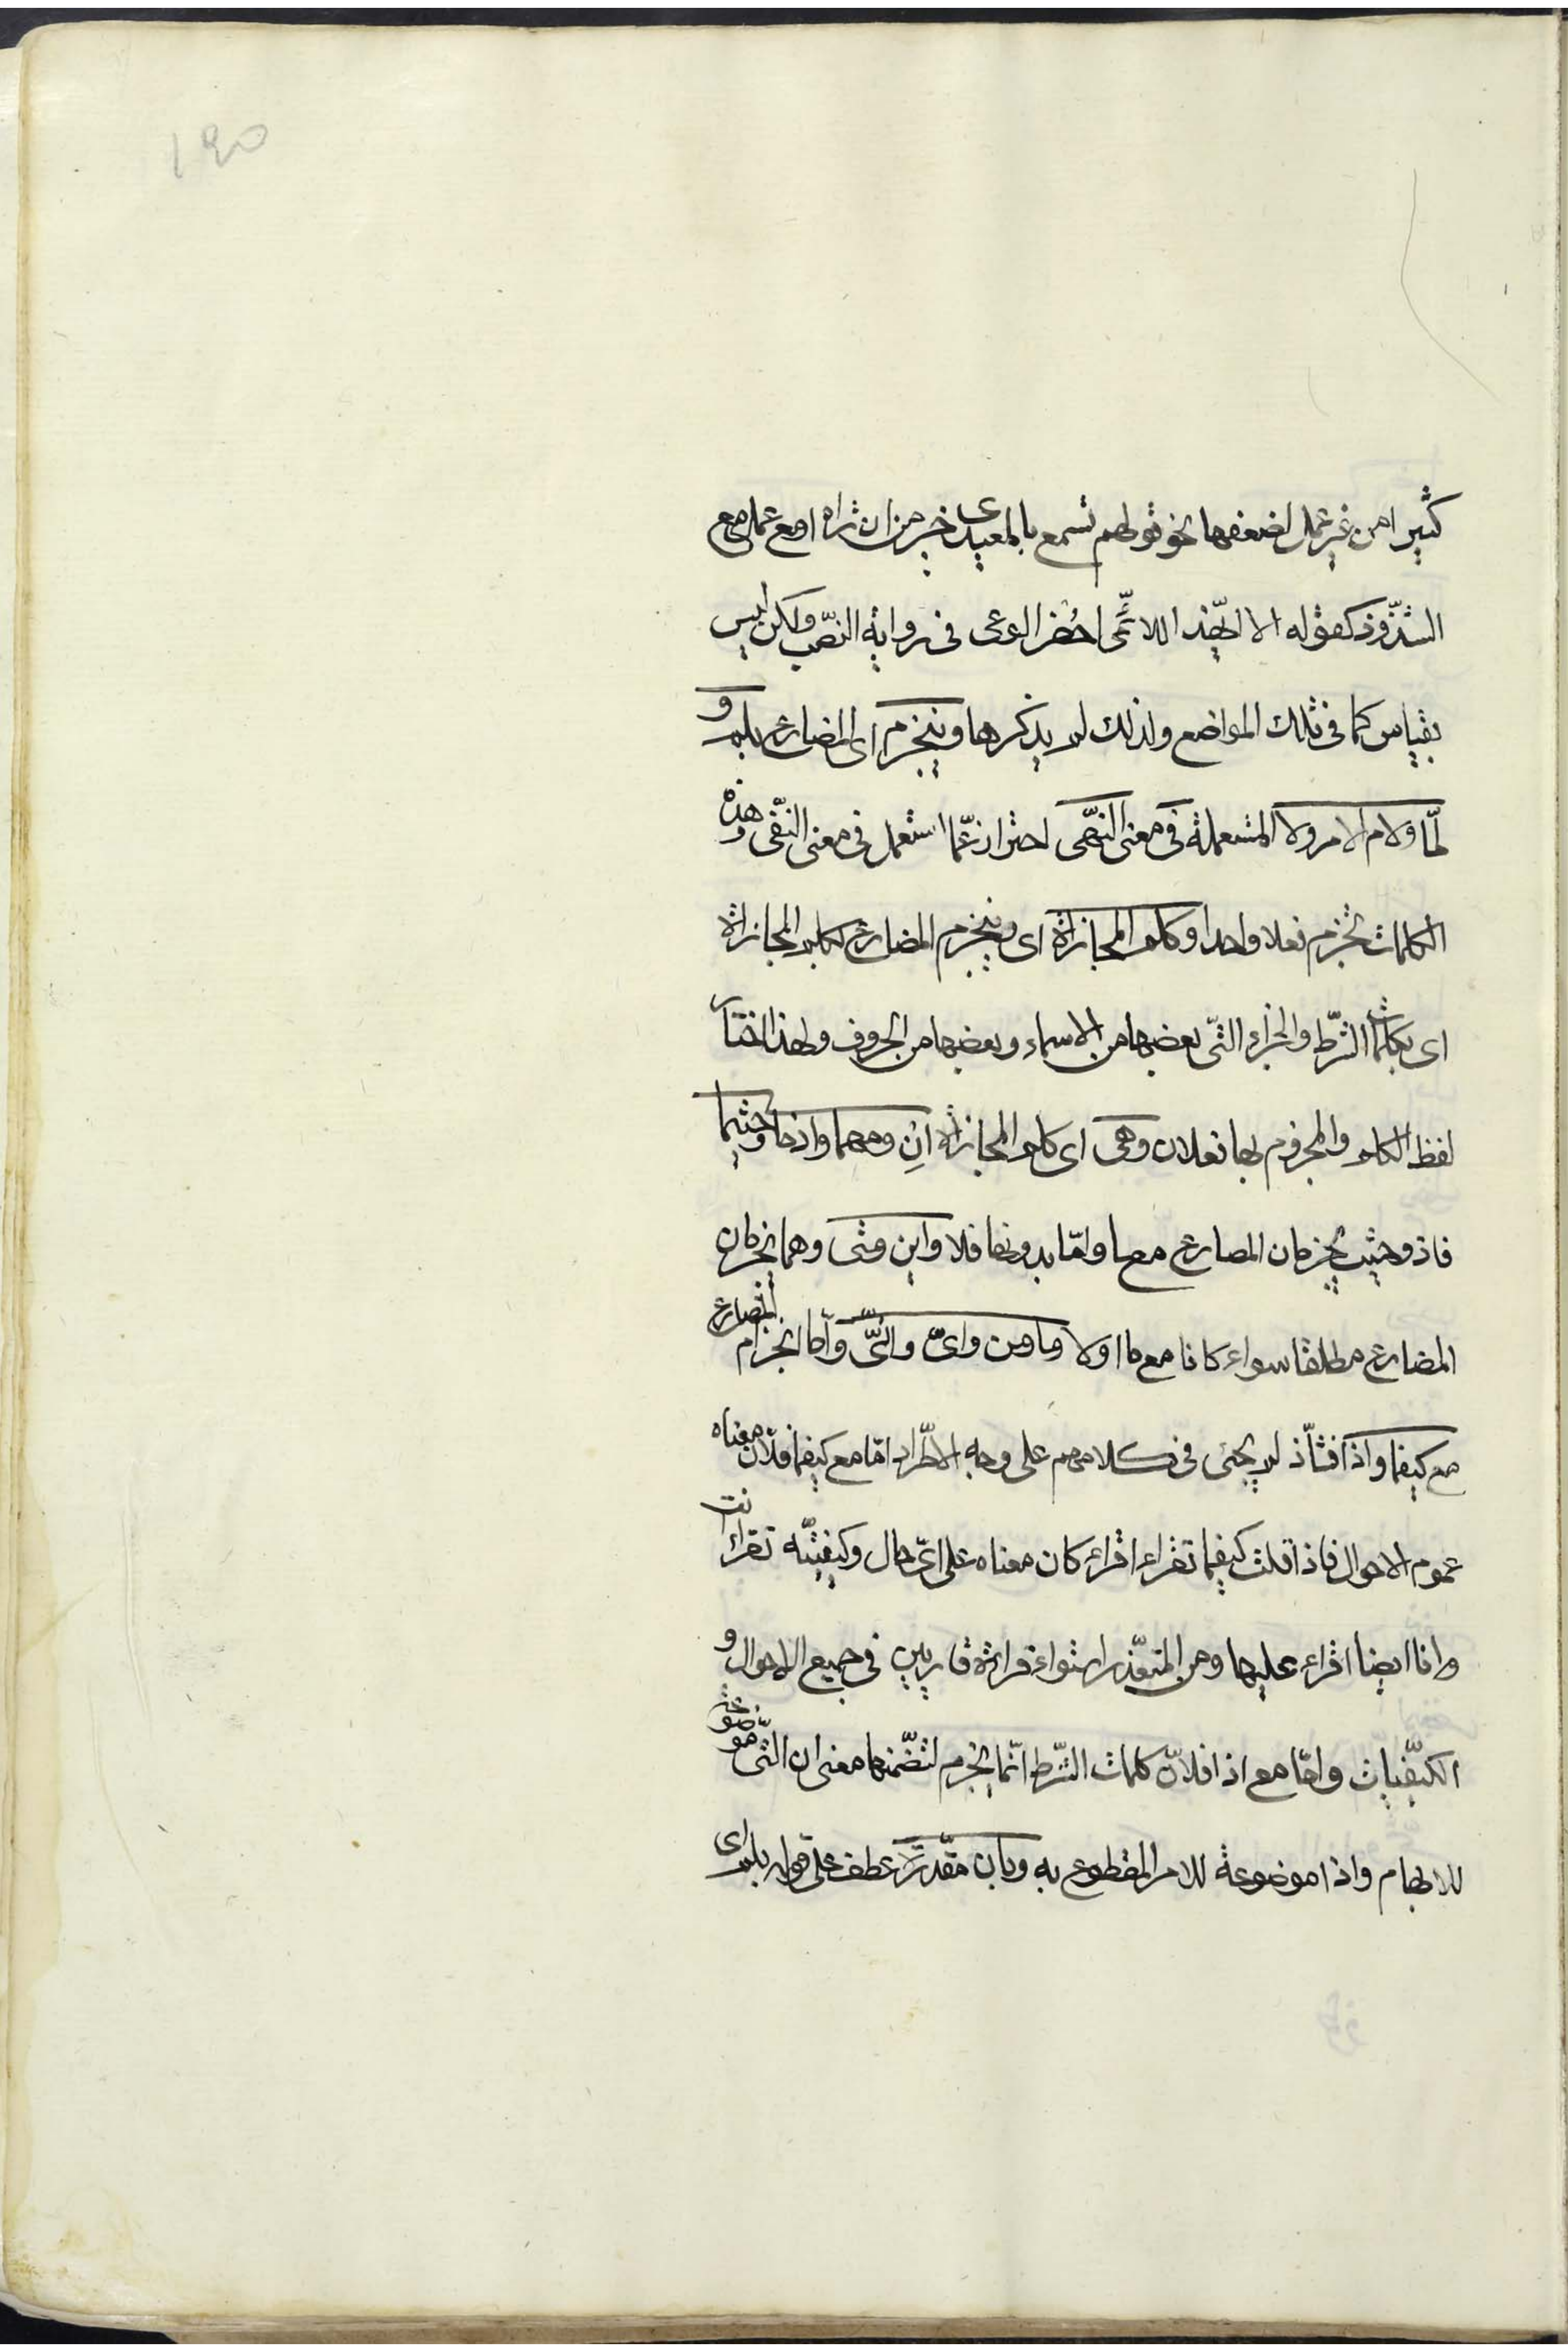 ۱۹۵
كثيرا من غير عمل لضعفها نحو قولهم تسمع بالمعيدى خير من ان تراه او مع عمل مع
الشذوذ كقوله الا ايهذا اللائمى احضر الوغى فى رواية النصب ولكن ليس
بقياس كما فى تلك المواضع ولذلك لم يذكرها وينجزم اى المضارع بلم و
لمّا ولام الامر ولا المستعملة فى معنى النهى احترازعمّا استعمل فى معنى النفى وهذه
الكلمات تجزم فعلا واحدا وكلم المجازاة اى وينجزم المضارع بكلم المجازاة
اى بكلمات الشرط والجزاء التى بعضها من الاسماء وبعضها من الحروف ولهذا اختار
لفظ الكلم والمجزوم بها فعلان وهى اى كلم المجازاة ان ومهما واذما وحيثما
فاذ وحيث يجزمان المضارع مع ما وامّا بدونها فلا واين ومتى وهما يجزمان
المضارع مطلقا سواء كانا مع ما اولا وما ومن واىّ وانّى وامّا انجزام المضارع
مع كيفما واذا فشاذّ لم يجئ فى كلامهم على وجه الاطّراد امّا مع كيفما فلانّ معناه
عموم الاحوال فاذا قلت كيفما تقراء اقراء كان معناه على اىّ حال وكيفيّة تقراء انت
وانا ايضا اقراء عليها ومن المتعذّر استواء قرائة قاريين فى جميع الاحوال و
الكيفيّات وامّا مع اذا فلانّ كلمات الشرط انّما يجزم لتضمّنها معنى ان التى هو موضوعة
للابهام واذا موضوعة للامر المقطوع به وبان مقدّرة عطف على قوله بلم اى